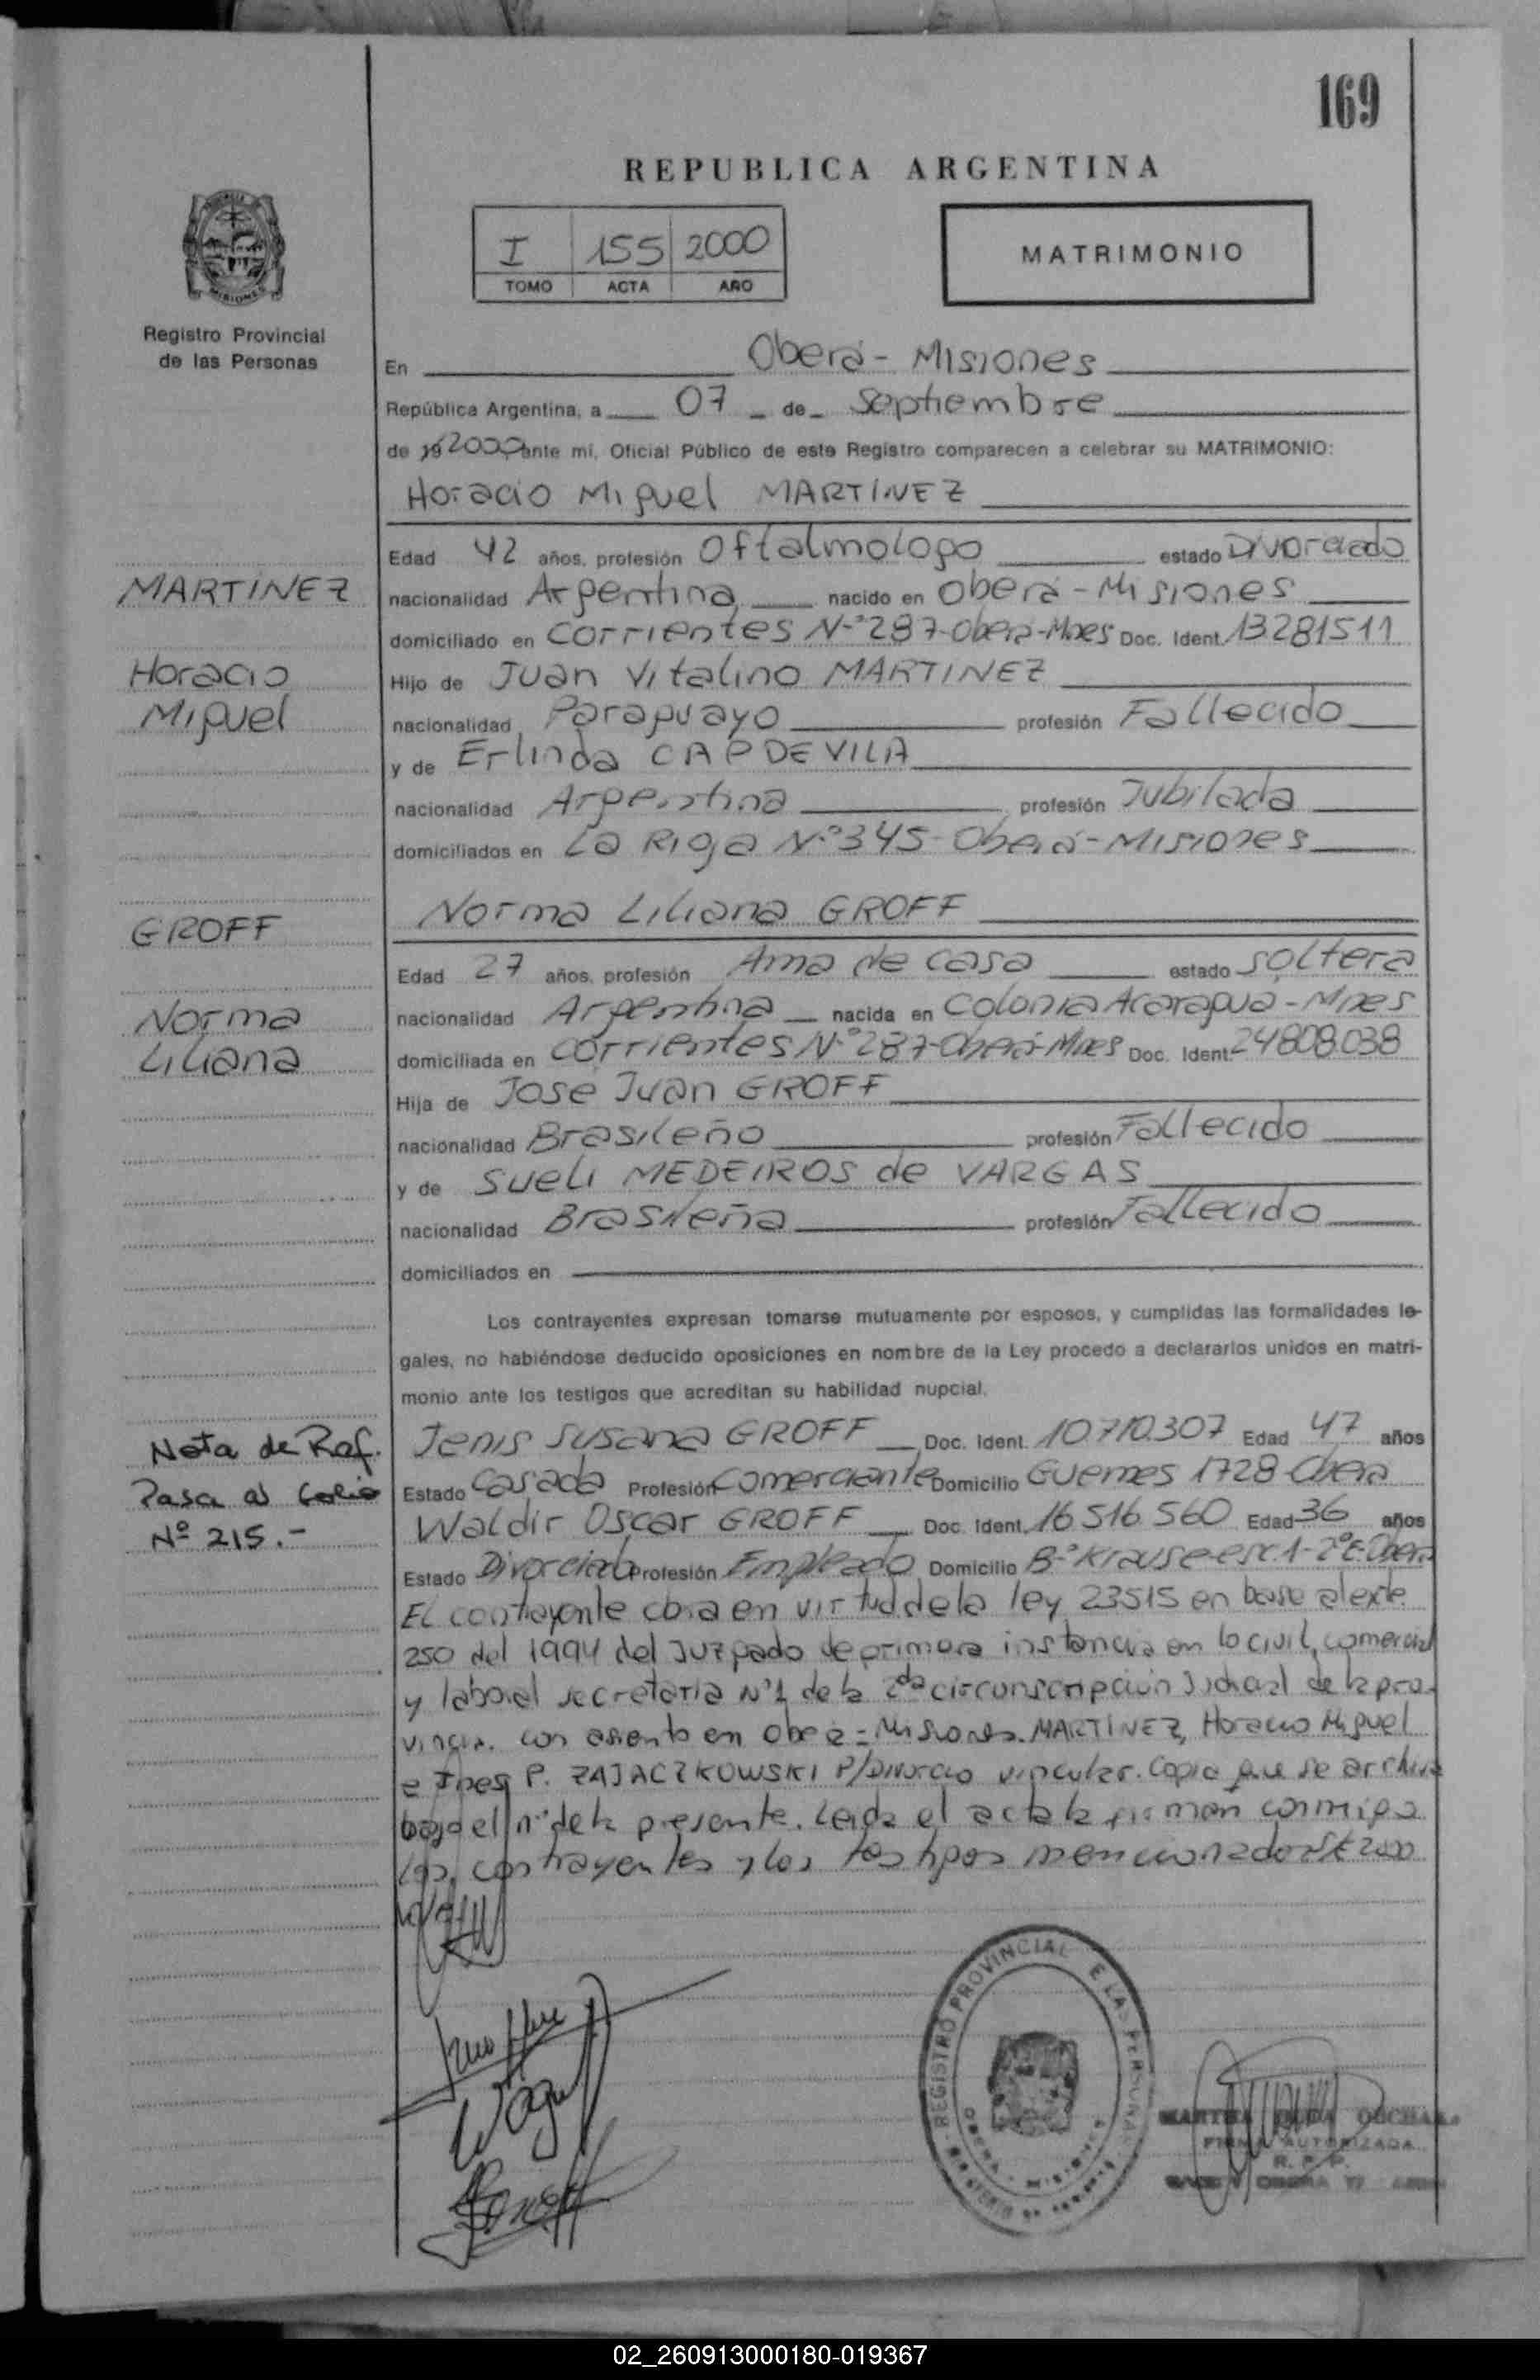 169
REPUBLICA ARGENTINA
I 155 2000
TOMO ACTA AÑO
MATRIMONIO
MISIONES
Registro Provincial
de las Personas
En Oberá - Misiones
República Argentina, a 07 de Septiembre
de 19 2000 ante mi, Oficial Público de este Registro comparecen a celebrar su MATRIMONIO:
Horacio Miguel MARTINEZ
Edad 42 años, profesión Oftalmologo estado Divorciado
MARTINEZ
nacionalidad Argentina nacido en Oberá - Misiones
domiciliado en Corrientes N-º 287-Oberá-Mnes Doc. Ident. 13.281511
Horacio
Hijo de Juan Vitalino MARTINEZ
Miguel
nacionalidad Paraguayo profesión Fallecido
y de Erlinda CAPDEVILA
nacionalidad Argentina profesión Jubilada
domiciliados en La Rioja N-º 345-Oberá-Misiones
Norma Liliana GROFF
GROFF
Edad 27 años, profesión Ama de casa estado soltera
Norma
nacionalidad Argentina nacida en Colonia Acaragua - Mnes
Liliana
domiciliada en Corrientes N-º 287-Oberá-Mnes Doc. Ident. 24808.038
Hija de José Juan GROFF
nacionalidad Brasileño profesión Fallecido
y de Sueli MEDEIROS de VARGAS
nacionalidad Brasileña profesión Fallecido
domiciliados en
Los contrayentes expresan tomarse mutuamente por esposos, y cumplidas las formalidades le-
gales, no habiéndose deducido oposiciones en nombre de la Ley procedo a declararlos unidos en matri-
monio ante los testigos que acreditan su habilidad nupcial.
Nota de Ref.
Pasa al folio
Nº 215.-
Jenis Susana GROFF Doc. Ident. 10.710.307 Edad 47 años
Estado Casada Profesión Comerciante Domicilio Guemes 1728-Oberá
Waldir Oscar GROFF Doc. Ident. 16.516.560 Edad 36 años
Estado Divorciado Profesión Empleado Domicilio B-º Krause-esc.1-2ºE.Oberá
El contrayente obra en virtud de la ley 23515 en base al exte
250 del 1994 del Juzgado de primera instancia en lo civil, comercial
y laboral secretaria Nº1 de la 2da circunscripción Judicial de la pro-
vincia. con asiento en Oberá-Misiones. MARTINEZ, Horacio Miguel
e Ines P. ZAJACZKOWSKI P/Divorcio vincular. Copia que se archiva
bajo el nº de la presente. Leida el acta la firman conmigo
los contrayentes y los testigos mencionados 2000
REGISTRO PROVINCIAL DE LAS PERSONAS
OBERA - MISIONES
MARTHA
FIRMA AUTORIZADA
R. P. P.
OBERA
02_260913000180-019367